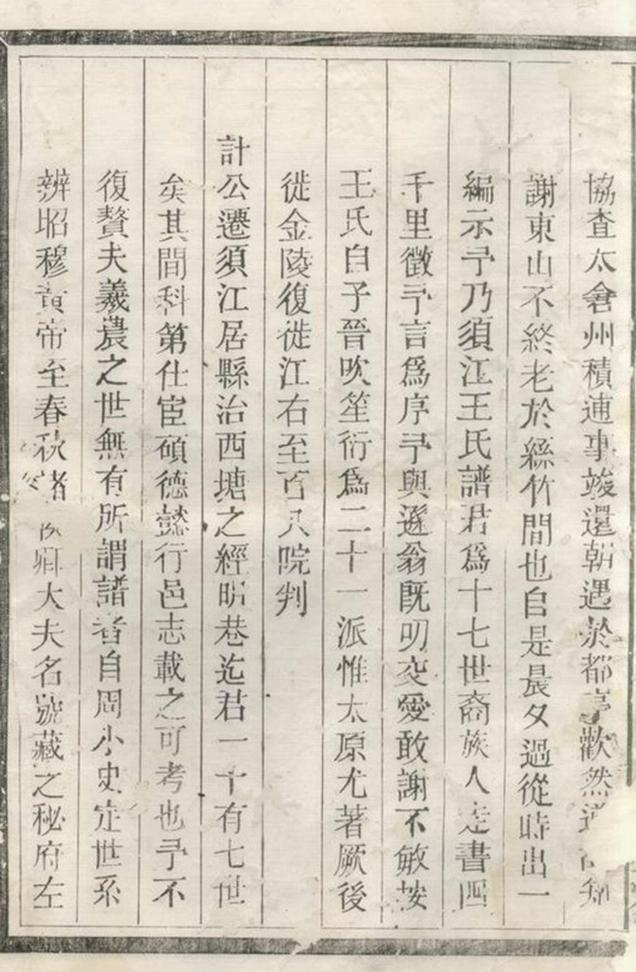 協查太倉州積逋事竣還朝遇於都亭歡然道
謝東山不終老於絲竹間也自是晨夕過從時出一
編示予乃須江王氏譜君爲十七世裔族人走書四
千里徵予言爲序予與遜翁旣叨交愛敢謝不敏按
王氏自子晉吹笙衍爲二十一派惟太原尤著厥後
徙金陵復徙江右至百八院判
計公遷須江居縣治西塘之經畊巷迄君一十有七世
矣其間科第仕宦碩德懿行邑志載之可考也予不
復贅夫羲農之世無有所謂譜者自周小史定世系
辨昭穆黄帝至春秋諸侯卿大夫名號藏之秘府左